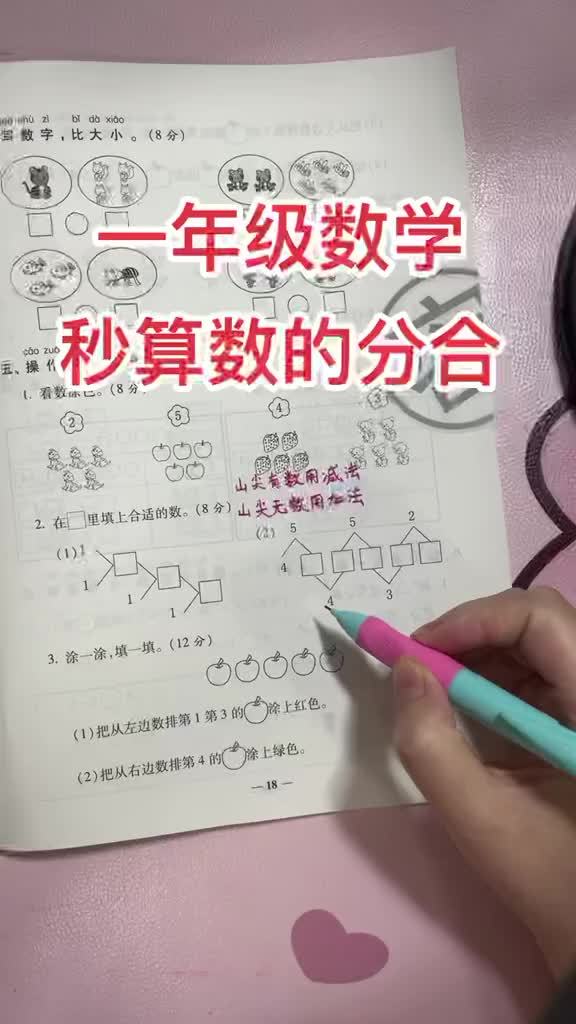 shù zì bǐ dà xiǎo
数字，比大小。(8分)
一年级数学
秒算数的分合
五、操作
1. 看数涂色。(8分)
2
5
4
3
山尖有数用减法
2. 在□里填上合适的数。(8分)
山尖无数用加法
(1) 1
1
1
1
(2)
5
5
2
4
4
3
3. 涂一涂，填一填。(12分)
(1)把从左边数排第1第3的涂上红色。
(2)把从右边数排第4的涂上绿色。
— 18 —